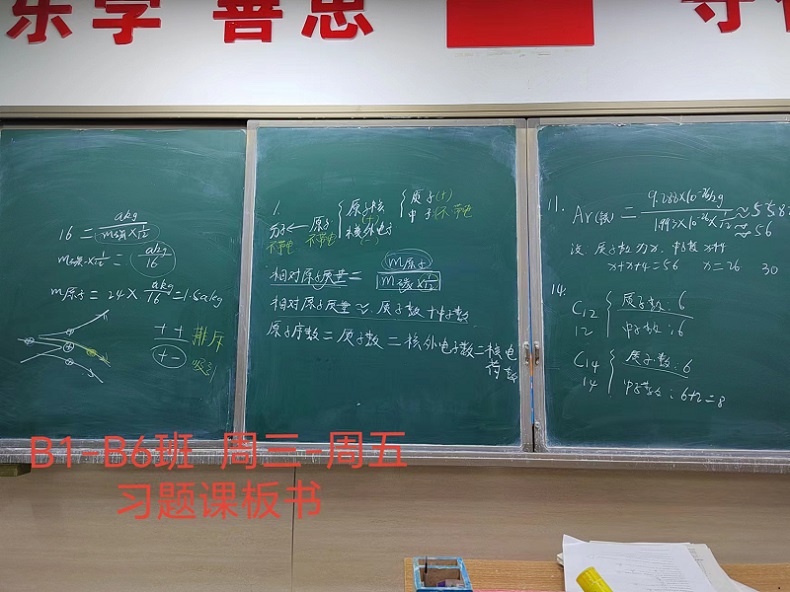 乐学 善思
16 = akg / m碳×1/12
m碳×1/12 = akg/16
m原子 = 24 × akg/16 = 1.5akg
+ + 排斥
+ - 吸引
1.
分子 ← 原子 { 原子核 (+) { 质子(+)
中子 不带电
核外电子 (-)
不带电 不带电
相对原子质量 = m原子 / m碳×1/12
相对原子质量 ≈ 质子数+中子数
原子序数 = 质子数 = 核外电子数 = 核电荷数
11. Ar(铁) = 9.288×10⁻²⁶kg / 1.993×10⁻²⁶×1/12 ≈ 55.8
≈ 56
设 质子数为x, 中子数x+4
x+x+4=56 x=26 30
14.
C12 { 质子数:6
12 中子数:6
C14 { 质子数:6
14 中子数:6+2=8
B1-B6班 周三-周五
习题课板书